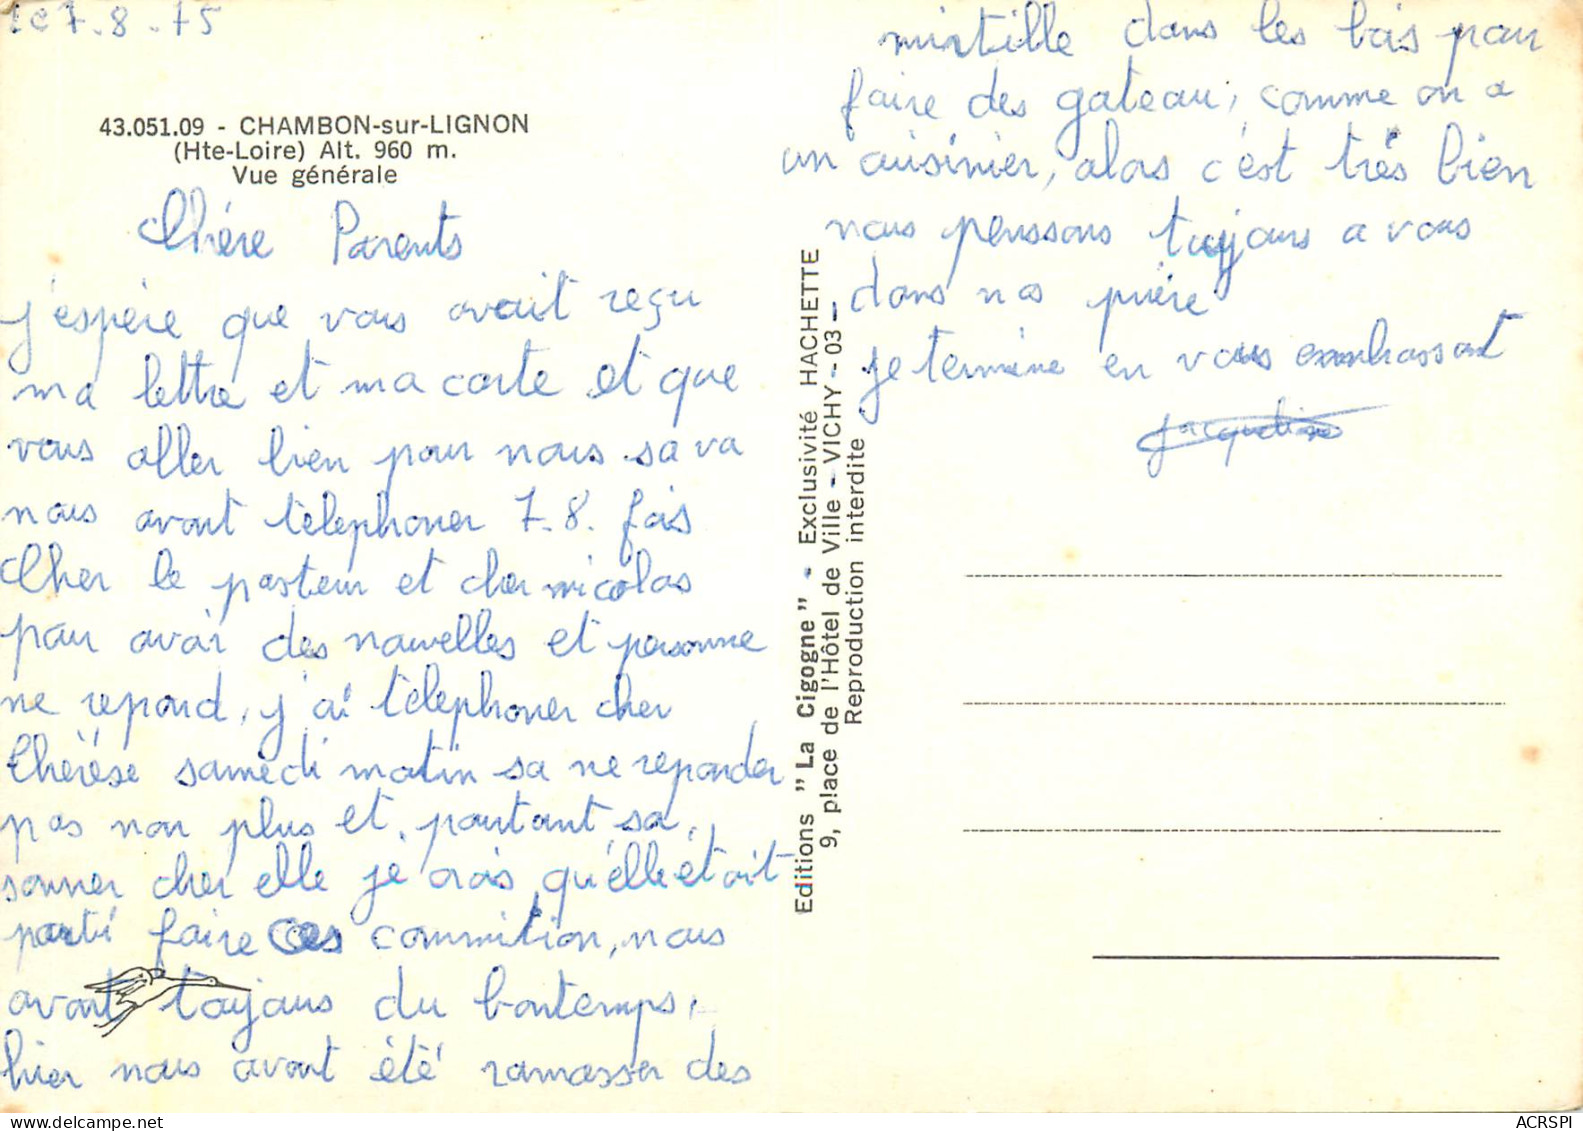 le 7.8.75
43.051.09 - CHAMBON-sur-LIGNON
(Hte-Loire) Alt. 960 m.
Vue générale
Chère Parents
j'espère que vous avait reçu
ma lettre et ma carte et que
vous aller bien pour nous sava
nous avont télephoner 7.8. fois
Cher le pasteur et cher nicolas
pour avoir des nouvelles et personne
ne repond, j'ai télephoner cher
Thérèse samedi matin sa ne reponder
pas non plus et. pourtant sa.
sonner cher elle je crois qu'elle était
parti faire ces commition, nous
avont toujours du bontemps,
hier nous avont été ramasser des
mirtille dans les bois pour
faire des gateau, comme on a
un cuisinier, alors c'est très bien
nous penssons toujours a vous
dans nos prière
je termine en vous exmbrassant
Jacqueline
Editions "La Cigogne" - Exclusivité HACHETTE
9, place de l'Hôtel de Ville - VICHY - 03 -
Reproduction interdite
ACRSPI